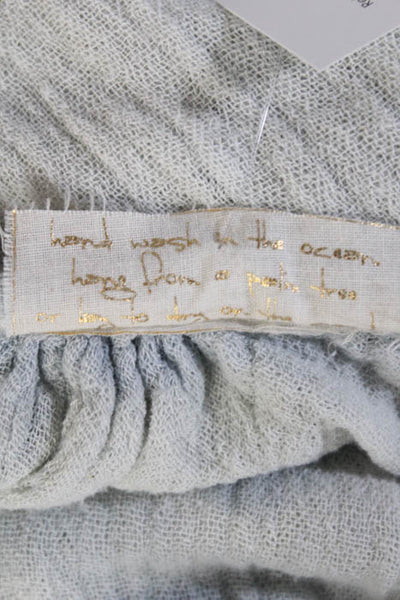 hand wash in the ocean
hang from a palm tree
to dry or